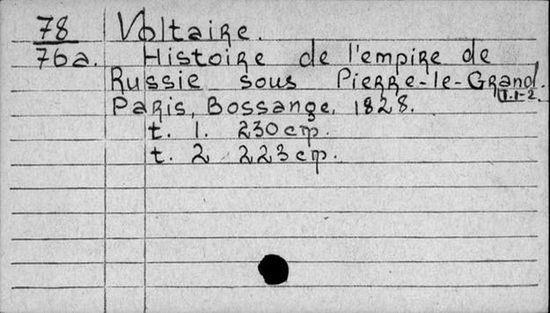 78 Voltaire.
76a. Histoire de l'empire de
Russie sous Pierre-le-Grand.
t.1-2.
Paris, Bossange, 1828.
t. 1. 230 стр.
t. 2 223 стр.